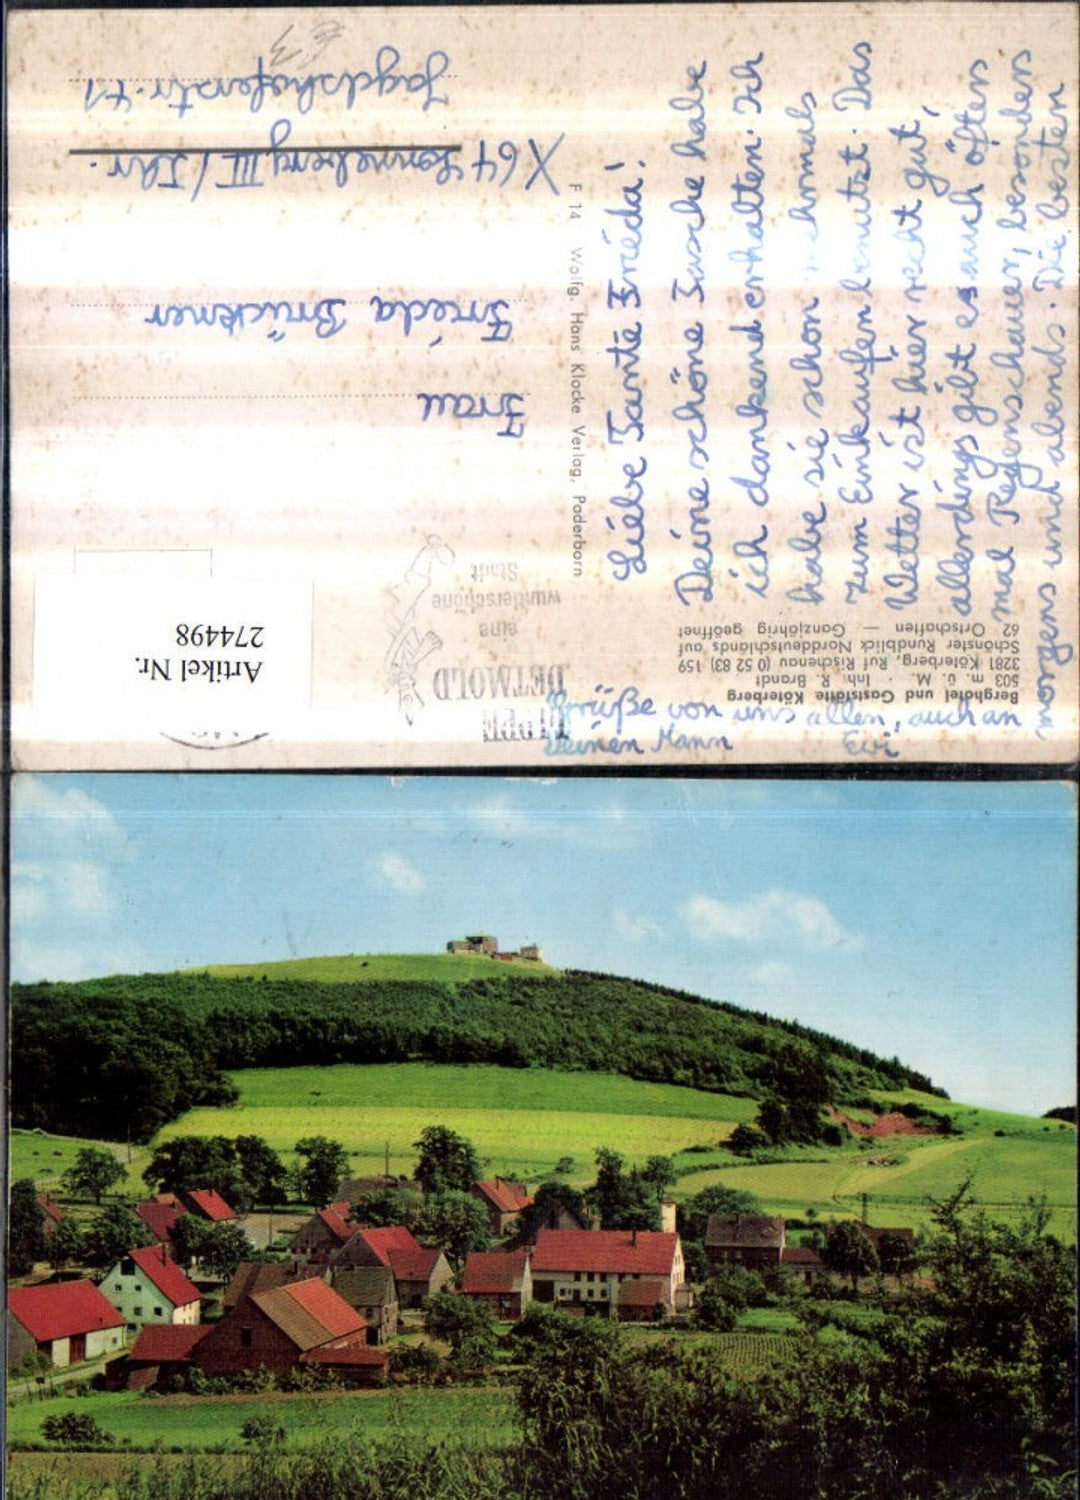 Berghotel und Gaststätte Köterberg
503 m. ü. M. · Inh. R. Brandt
3281 Köterberg, Ruf Rischenau (0 52 83) 159
Schönster Rundblick Norddeutschlands auf
62 Ortschaften — Ganzjährig geöffnet
Liebe Tante Frieda!
Deine schöne Tasche habe
ich dankend erhalten. Ich
habe sie schon mehrmals
zum Einkaufen benutzt. Das
Wetter ist hier recht gut,
allerdings gibt es auch öfters
mal Regenschauer, besonders
morgens und abends. Die besten
Grüße von uns allen, auch an
Deinen Mann
Evi
F 14 Wolfg. Hans Klocke Verlag, Paderborn
LIPPE
DETMOLD
eine
wunderschöne
Stadt
Artikel Nr.
274498
Frau
Frieda Brückner
X64 Sonneberg III / Thr.
Jagdshoferstr. 41